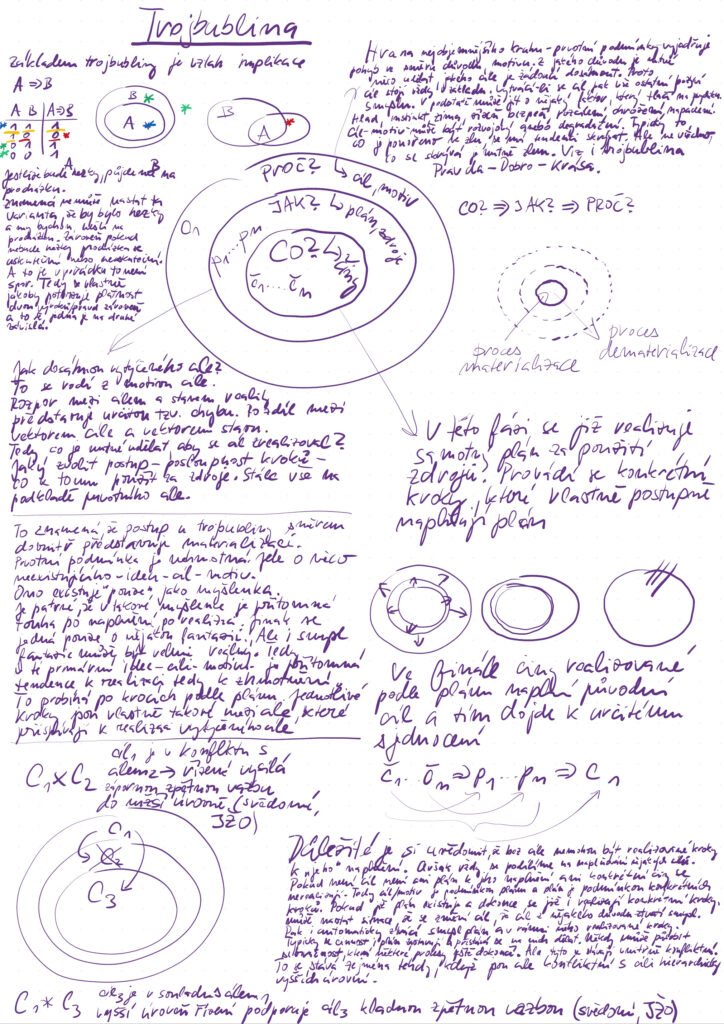 Trojbublina
základem trojbubliny je vztah implikace
A ⇒ B
A B A⇒B
1 1 1
1 0 0
0 1 1
0 0 1
B
A
B
A
A B
Jestliže bude hezky, půjdeme na
procházku.
Znamená nemůže nastat ta
varianta, že by bylo hezky
a my bychom nešli na
procházku. Zároveň pokud
nebude hezky procházka se
uskuteční nebo neuskuteční.
A to je v pořádku to není
spor. Tedy se vlastně
jakoby potvrzuje platnost
dvou zároveň
a to že jedna je na druhé
závislá.
Hrana nejobjemnějšího kruhu - prvotní podmínky vyjadřuje
pohyb ve směru důvodu, motivu. Z jakého důvodu je nutné
něco udělat jakého cíle je žádoucí dosáhnout. Proto
cíl stojí vždy v základu. Vytratí-li se cíl pak vše ostatní pozbývá
smyslu. V podstatě může jít o nějaký vektor, který tlačí na
hlad, instinkt, zima, rození, bezpečí, ohrožení, napadení
Cíl-motiv může být rozvojový anebo degradační. Typicky to
co je ponořeno ve zlu, se musí skrývat. Ale ne všechno,
co se skrývá je nutně zlem. Viz i trojbublina
Pravda - Dobro - Krása.
PROČ? ↳ cíl, motiv
JAK? ↳ plán, zdroje
CO? ↳ činy
C1
p1...pn
č1...čn
CO? ⇒ JAK? ⇒ PROČ?
proces
materializace
proces
dematerializace
Jak dosáhnou vytýčeného cíle?
To se rodí z emotivu cíle.
Rozpor mezi cílem a stavem reality
představuje určitou tzv. chybu. Rozdíl mezi
vektorem cíle a vektorem stavu.
Tedy co je nutné udělat aby se cíl zrealizoval?
Jaký zvolit postup - posloupnost kroků -
co k tomu použít za zdroje. Stále vše na
podkladě prvotního cíle.
V této fázi se již realizuje
samotný plán za použití
zdrojů. Provádí se konkrétní
kroky, které vlastně postupně
naplňují plán
To znamená že postup u trojbubliny směrem
dovnitř představuje materializaci.
Prvotní podmínka je nehmotná. Jde o něco
neexistujícího - idea - cíl - motiv.
Ono existuje pouze jako myšlenka.
Je patrné, že v takové myšlence je přítomná
touha po naplnění po realizaci. Jinak se
jedná pouze o nějakou fantazii. Ale i smysl
fantazie může být velmi reálný. Tedy
v té primární idee - cíli - motivu - je přítomná
tendence k realizaci tedy k zhmotnění.
To probíhá po krocích podle plánu. Jednotlivé
kroky jsou vlastně takové mezicíle, které
přispívají k realizaci vytýčeného cíle
Ve finále činy realizované
podle plánu naplní původní
cíl a tím dojde k určitému
sjednocení
č1...čn ⇒ p1...pn ⇒ C1
C1 × C2
cíl1 je v konfliktu s
cílem2 → řízení vysílá
zápornou zpětnou vazbu
do nižší úrovně (svědomí,
JZO)
C1
C2
C3
Důležité je si uvědomit, že bez cíle nemohou být realizované kroky
k "jeho" naplnění. Avšak vždy se podílíme na naplňování nějakých cílů.
Pokud není cíl není ani plán k jeho naplnění a ani konkrétní činy se
nerealizují. Tedy cíl/motiv je podmínkou plánu a plán je podmínkou konkrétních
kroků. Pokud již plán existuje a dokonce se již i realizují konkrétní kroky,
může nastat situace, že se změní cíl, že cíl z nějakého důvodu ztratí smysl.
Pak i automaticky ztrácí smysl plán a v rámci něho realizované kroky.
Typicky se činnost i plán a přestává se na nich dělat. Někdy může působit
setrvačnost, která některé procesy ještě dokončí. Ale toto je stávají vnitřně konfliktní.
To se stává zejména tehdy, když jsou cíle konfliktní s cíli hierarchicky
vyšších úrovní.
C1 * C3
cíl3 je v souladu s cílem1
vyšší úroveň řízení podporuje cíl3 kladnou zpětnou vazbou (svědomí, JZO)